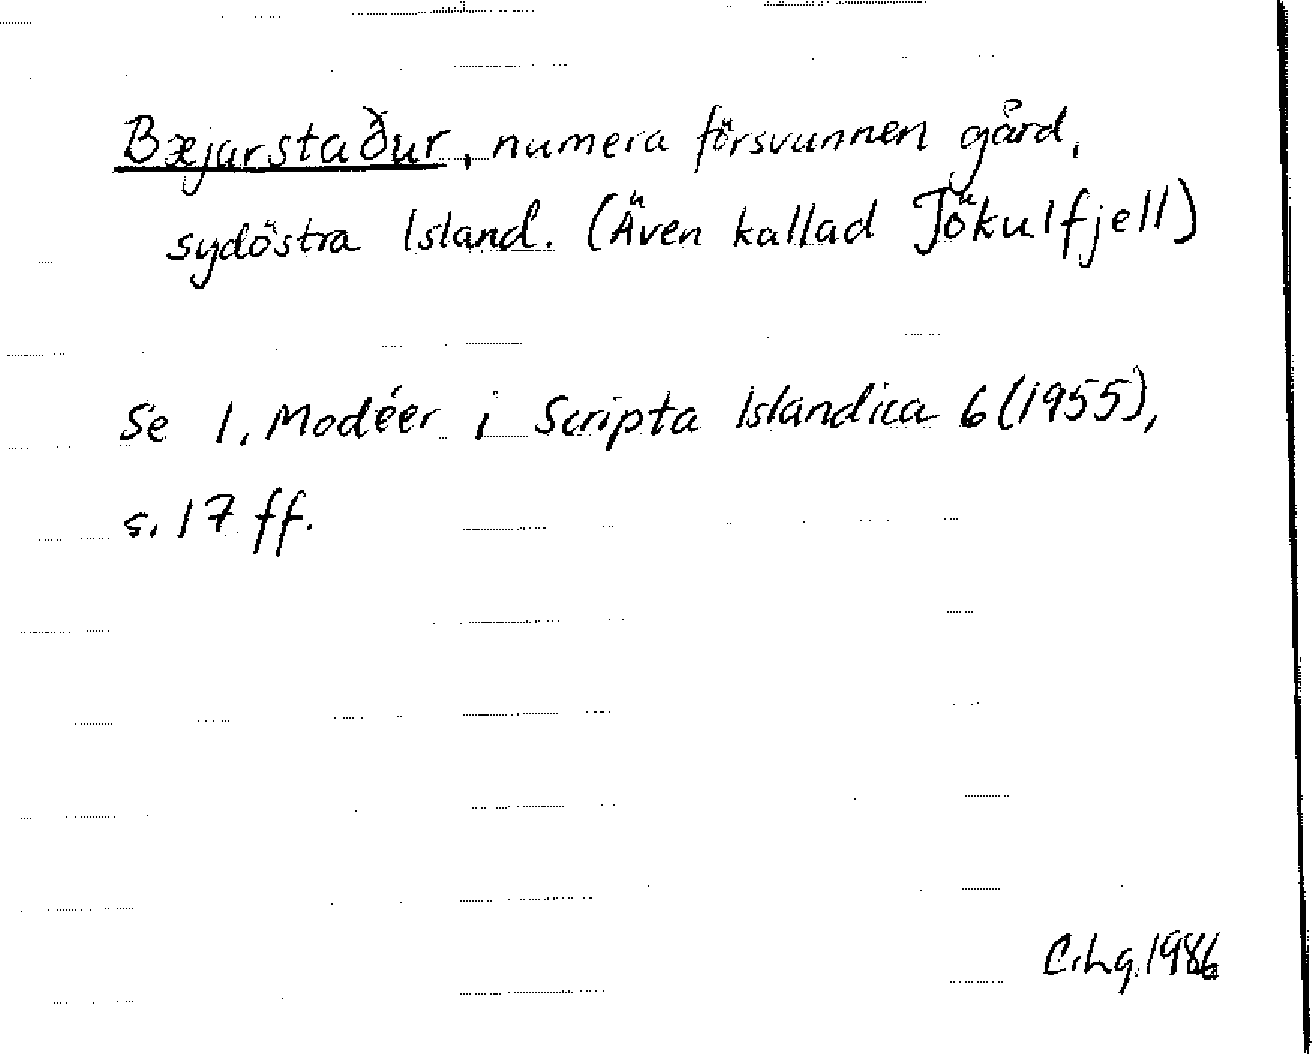 Bæjarstaður, numera försvunnen gård,
sydöstra Island. (Även kallad Jökulfjell)
Se I. Modéer i Scripta Islandica 6 (1955),
s. 17 ff.
C.Lg. 1986